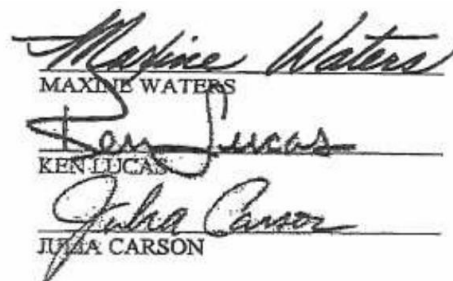 Maxine Waters
MAXINE WATERS
Ken Lucas
KEN LUCAS
Julia Carson
JULIA CARSON